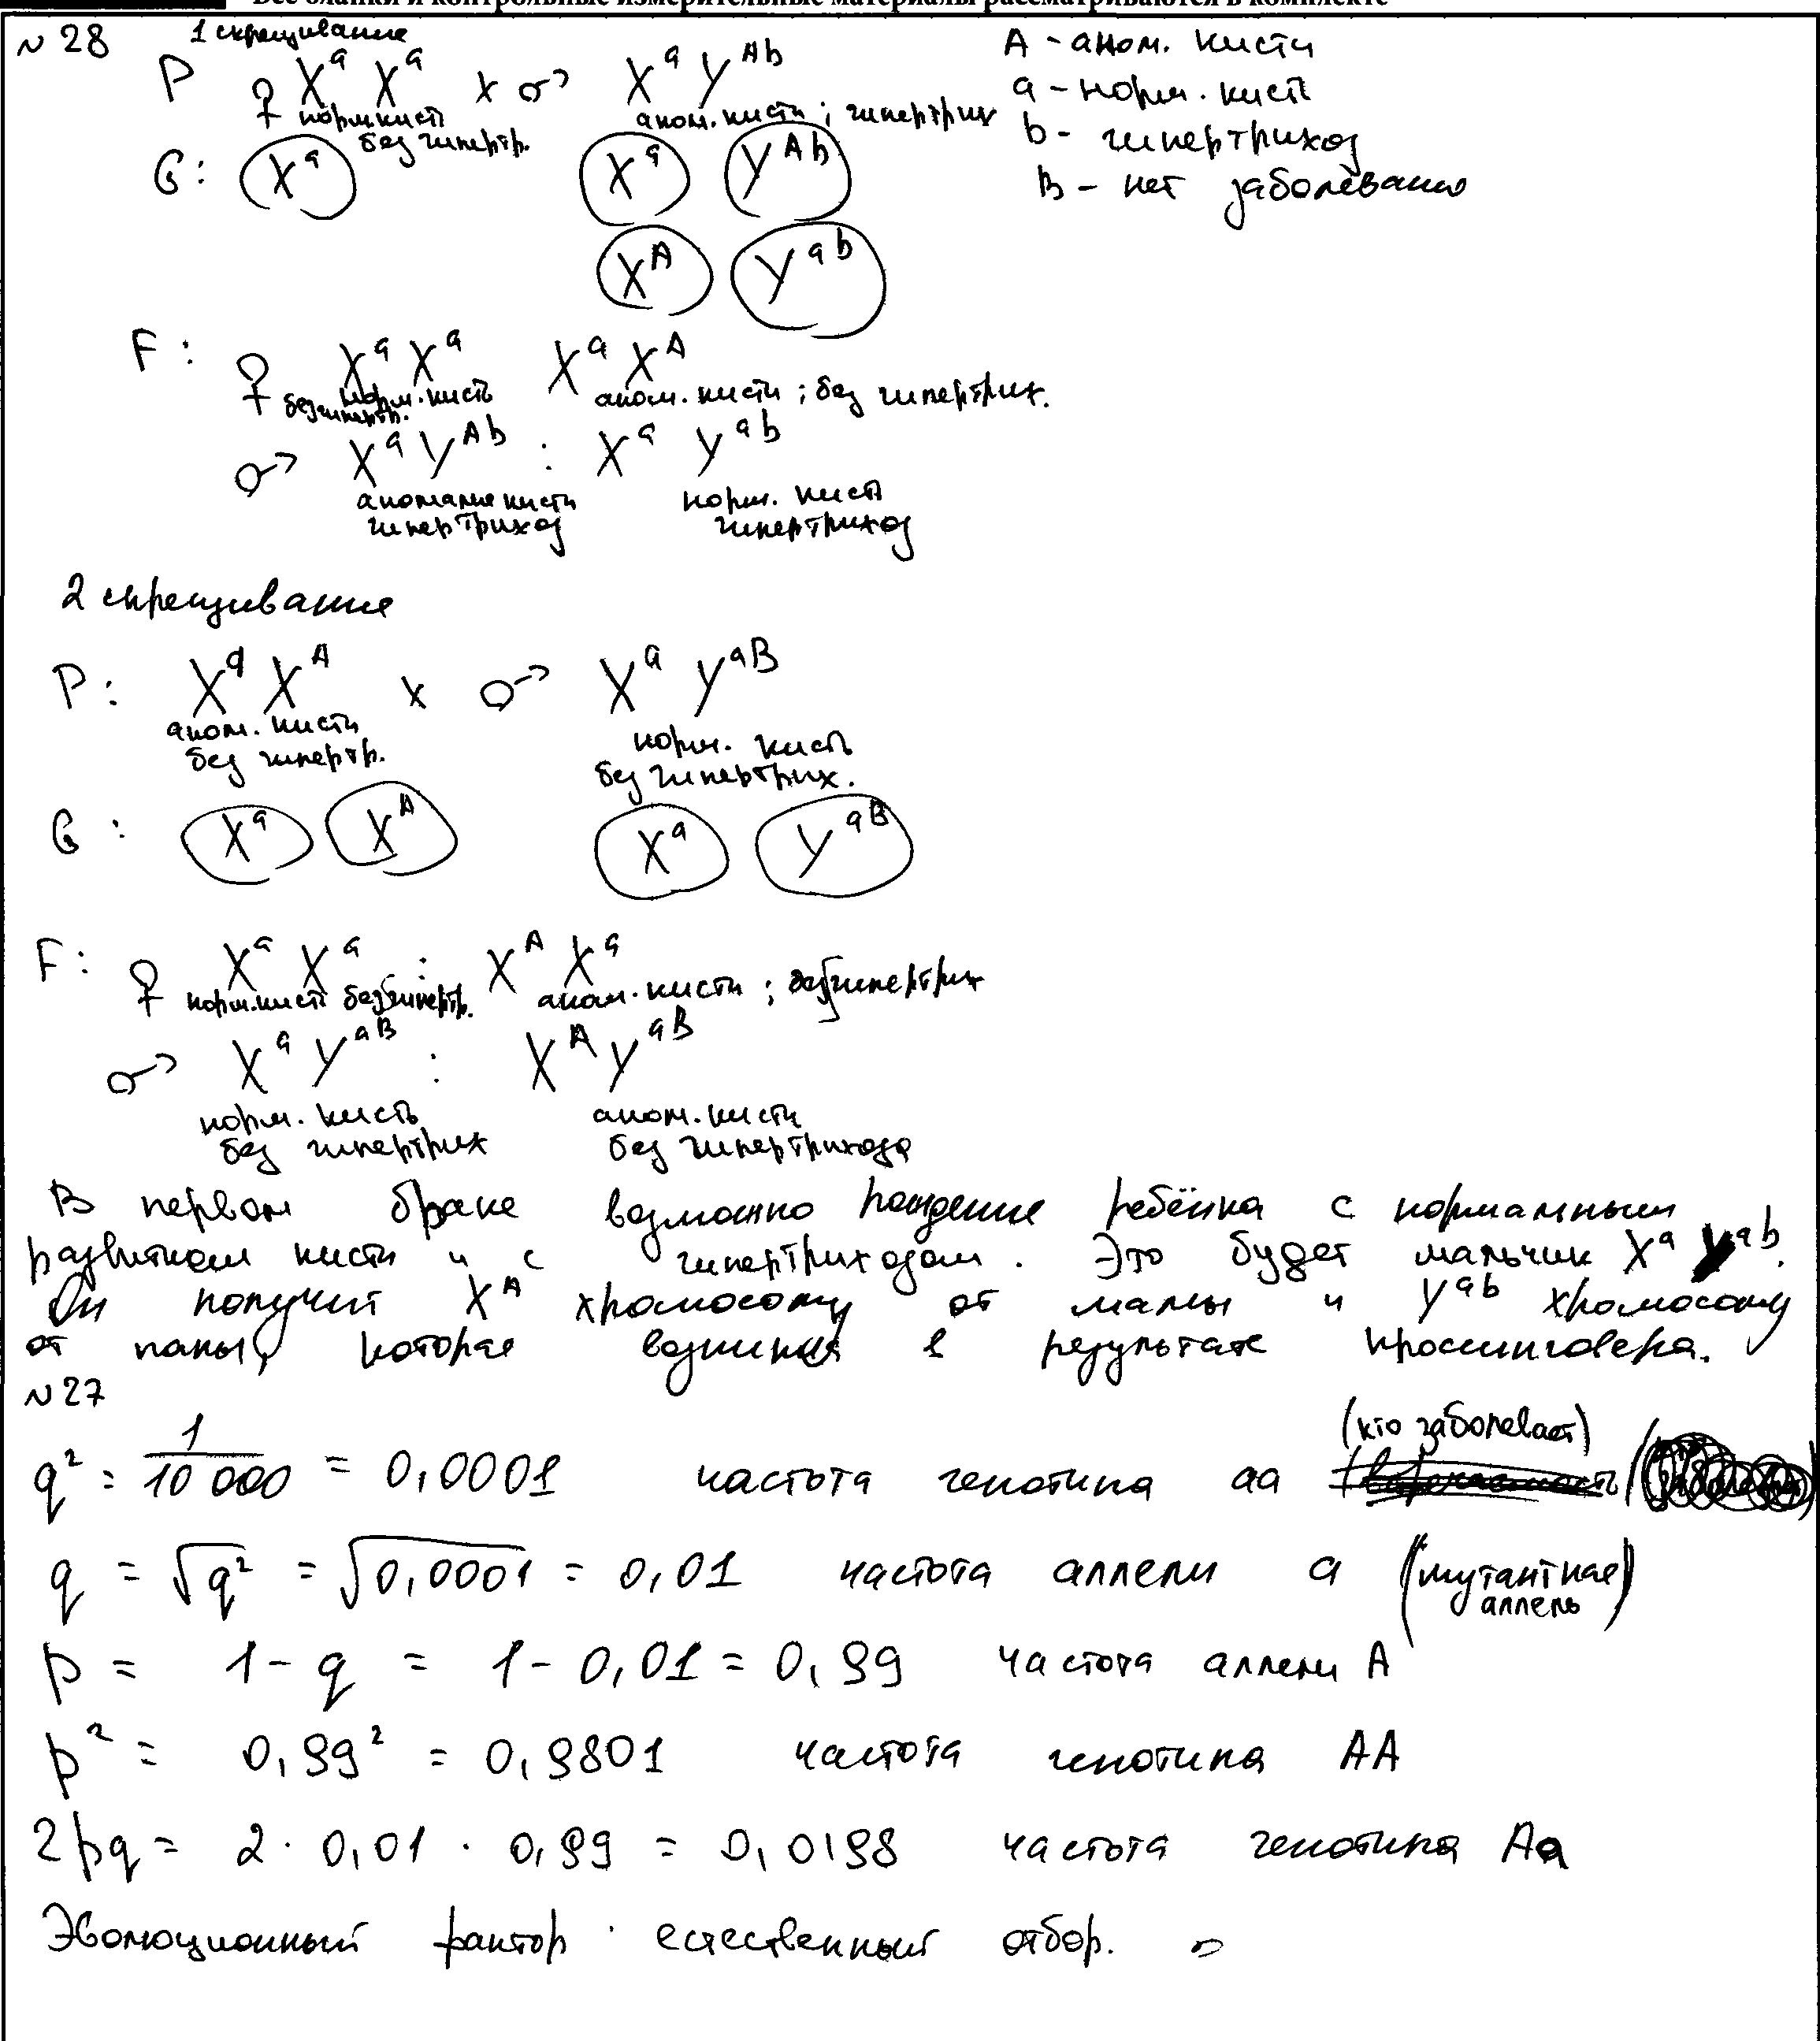 Все бланки и контрольные измерительные материалы рассматриваются в комплекте
№28 1 скрещивание
A - аном. кисти
P ♀ XᵃXᵃ x ♂ XᵃYᴬᵇ
a - норм. кисть
норм. кисть без гипертр.
аном. кисти; гипертрих
b - гипертрихоз
G: Xᵃ Xᵃ Yᴬᵇ
B - нет заболевания
Xᴬ Yᵃᵇ
F: ♀ XᵃXᵃ XᵃXᴬ
норм. кисть без гипертр.
аном. кисти; без гипертрих.
♂ XᵃYᴬᵇ : XᵃYᵃᵇ
аномалие кисти гипертрихоз
норм. кисть гипертрихоз
2 скрещивание
P: XᵃXᴬ x ♂ XᵃYᵃᴮ
аном. кисти без гипертр.
норм. кисть без гипертрих.
G: Xᵃ Xᴬ Xᵃ Yᵃᴮ
F: ♀ XᵃXᵃ : XᴬXᵃ
норм. кисть без гипертр.
аном. кисти; без гипертрих
♂ XᵃYᵃᴮ : XᴬYᵃᴮ
норм. кисть без гипертрих
аном. кисти без гипертрихоза
В первом браке возможно рождение ребёнка с нормальным
развитием кисти и с гипертрихозом. Это будет мальчик XᵃYᵃᵇ.
Он получит Xᴬ хромосому от мамы и Yᵃᵇ хромосому
от папы, которая возникла в результате кроссинговера.
№27
q² = 1/10 000 = 0,0001 частота генотипа aa (кто заболевает)
q = √q² = √0,0001 = 0,01 частота аллели a (мутантная аллель)
p = 1 - q = 1 - 0,01 = 0,99 частота аллели A
p² = 0,99² = 0,9801 частота генотипа AA
2pq = 2 · 0,01 · 0,99 = 0,0198 частота генотипа Aa
Эволюционный фактор естественный отбор.